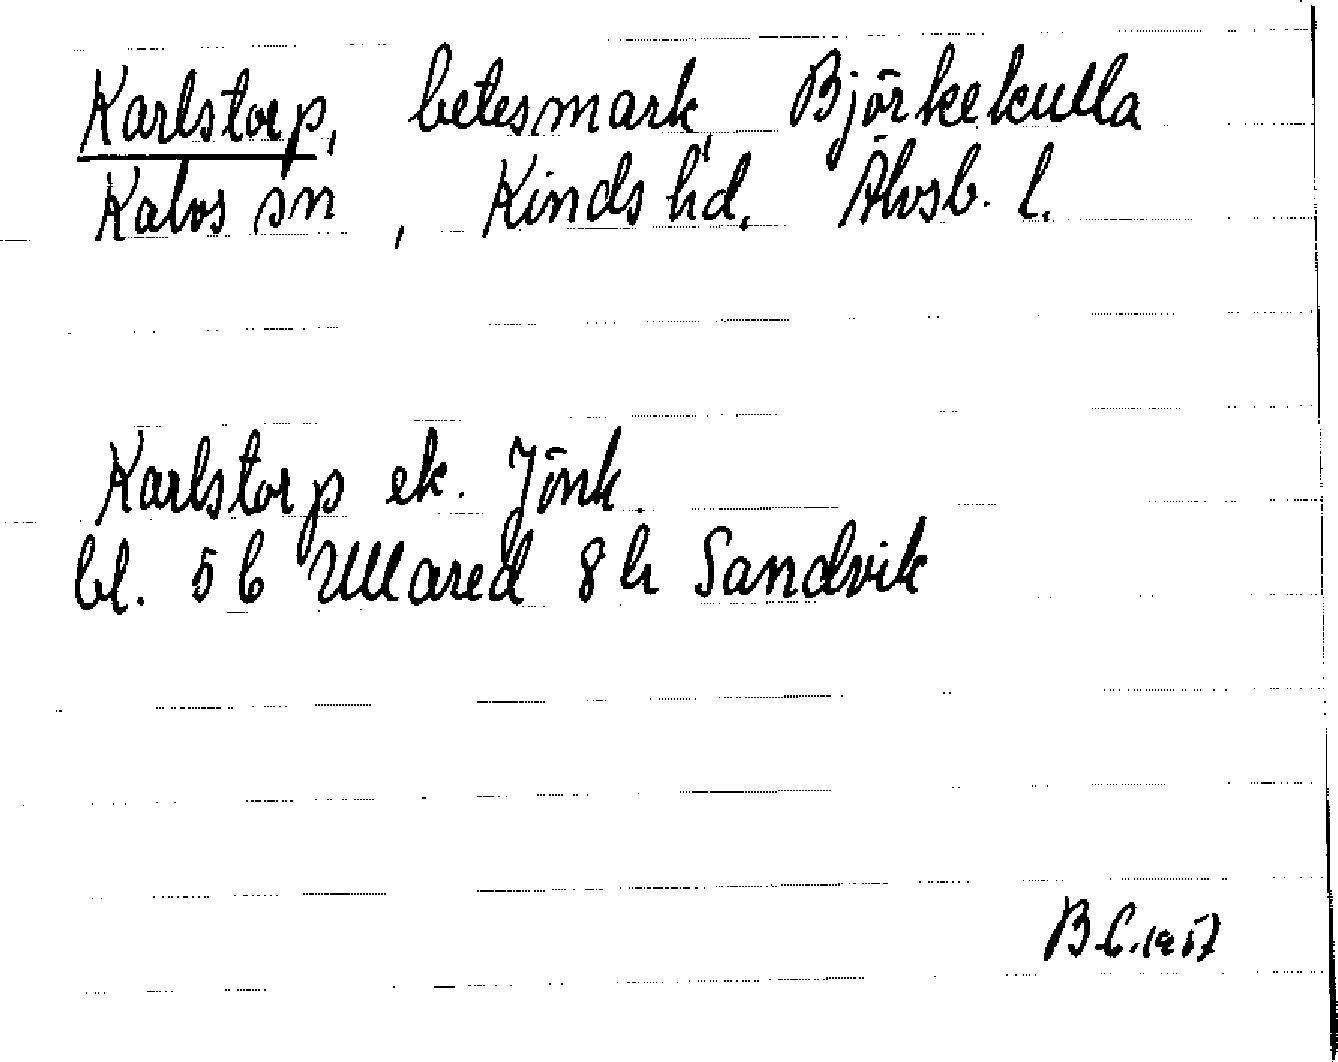 Karlstorp, betesmark, Björkekulla
Kalvs sn, Kinds hd, Älvsb. l.
Karlstorp ek. Jönk.
bl. 5 b Ullared 8 h Sandvik